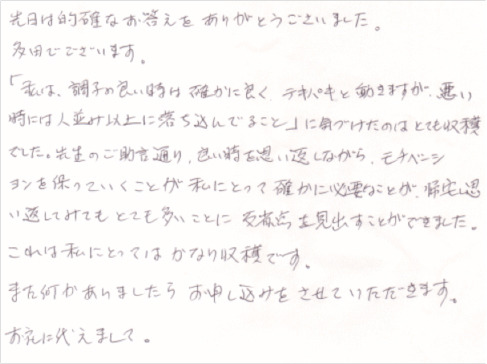 先日は的確なお答えをありがとうございました。
多田でございます。
「私は、調子の良い時は確かに良く、テキパキと動きますが、悪い
時には人並み以上に落ち込んでること」に気づけたのはとても収穫
でした。先生のご助言通り、良い時を思い返しながら、モチベーシ
ョンを保っていくことが私にとって確かに必要なことが、帰宅し思
い返してみてもとても多いことに反省点を見出すことができました。
これは私にとってはかなり収穫です。
また何かありましたらお申し込みをさせていただきます。
お礼に代えまして。